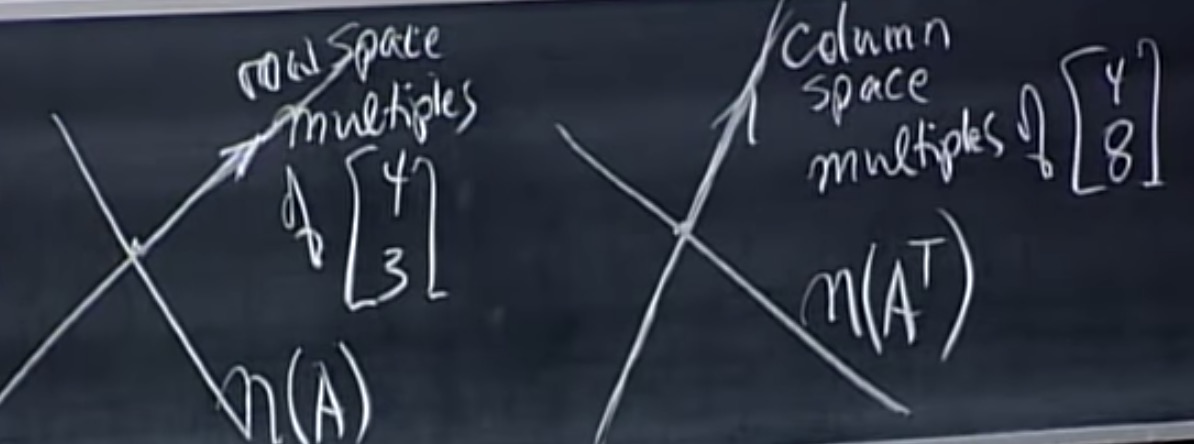 row space
multiples
of [4
3]
N(A)
column
space
multiples of [4
8]
N(Aᵀ)